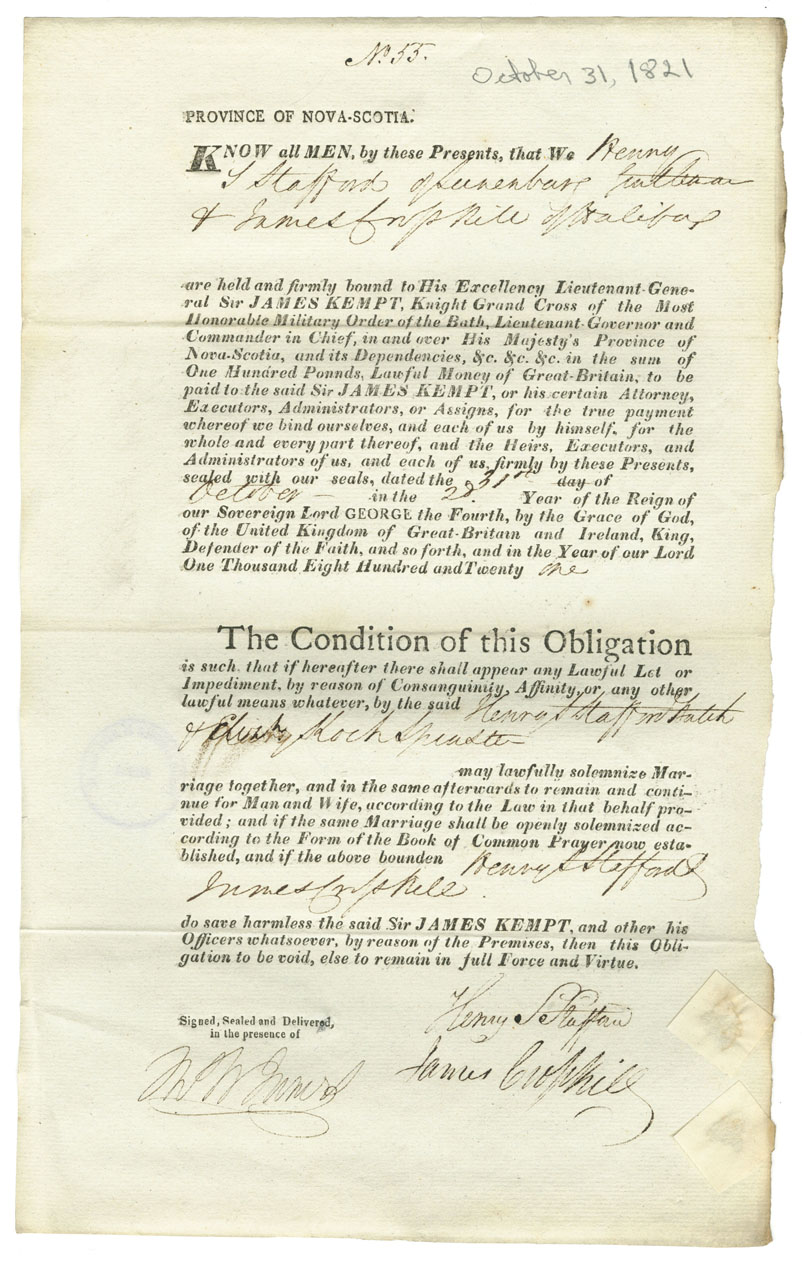 No. 55.
October 31, 1821
PROVINCE OF NOVA-SCOTIA.
KNOW all MEN, by these Presents, that We Henry
S Stafford of Lunenburg
& James Cropkill of Halifax
are held and firmly bound to His Excellency Lieutenant-Gene-
ral Sir JAMES KEMPT, Knight Grand Cross of the Most
Honorable Military Order of the Bath, Lieutenant-Governor and
Commander in Chief, in and over His Majesty's Province of
Nova-Scotia, and its Dependencies, &c. &c. &c. in the sum of
One Hundred Ponnds, Lawful Money of Great-Britain, to be
paid to the said Sir JAMES KEMPT, or his certain Attorney,
Executors, Administrators, or Assigns, for the true payment
whereof we bind ourselves, and each of us by himself, for the
whole and every part thereof, and the Heirs, Executors, and
Administrators of us, and each of us firmly by these Presents,
sealed with our seals, dated the 31st day of
October in the 2d. Year of the Reign of
our Sovereign Lord GEORGE the Fourth, by the Grace of God,
of the United Kingdom of Great-Britain and Ireland, King,
Defender of the Faith, and so forth, and in the Year of our Lord
One Thousand Eight Hundred and Twenty one
The Condition of this Obligation
is such, that if hereafter there shall appear any Lawful Let or
Impediment, by reason of Consanguinity, Affinity, or, any other
lawful means whatever, by the said Henry S Stafford Batch
& Koch Spinster
may lawfully solemnize Mar-
riage together, and in the same afterwards to remain and conti-
nue for Man and Wife, according to the Law in that behalf pro-
vided; and if the same Marriage shall be openly solemnized ac-
cording to the Form of the Book of Common Prayer now esta-
blished, and if the above bounden Henry S Stafford &
James Cropkill.
do save harmless the said Sir JAMES KEMPT, and other his
Officers whatsoever, by reason of the Premises, then this Obli-
gation to be void, else to remain in full Force and Virtue.
Signed, Sealed and Delivered,
in the presence of
Henry S Stafford
James Cropkill